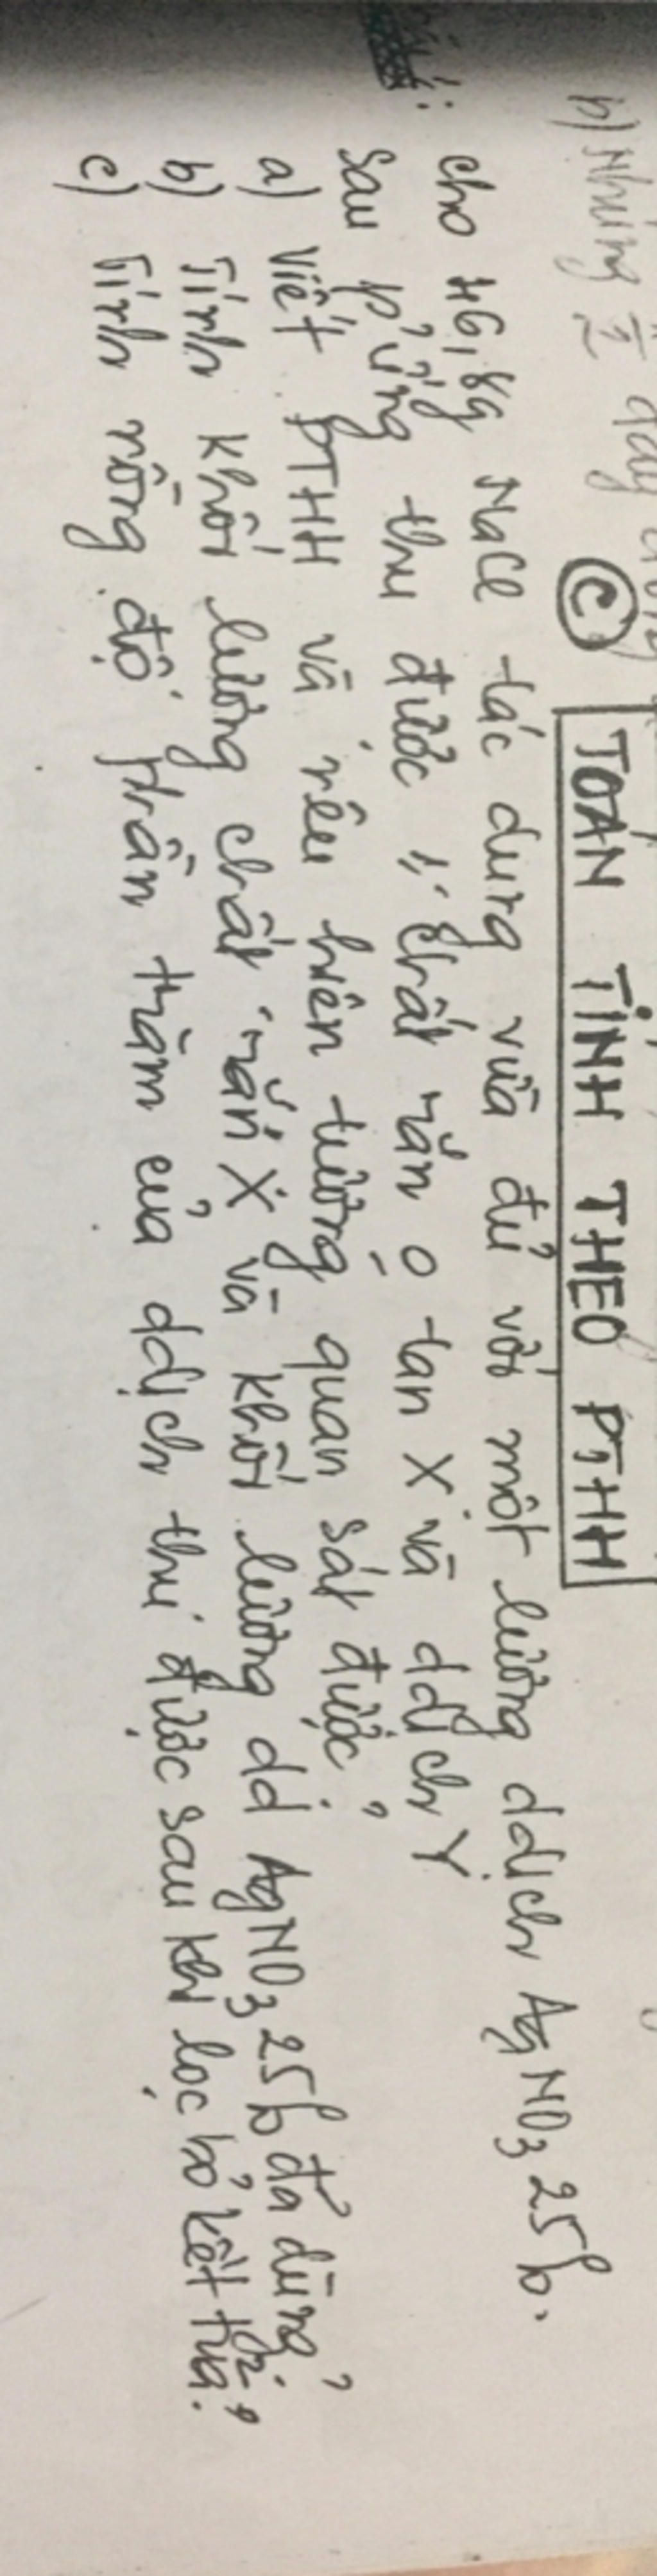 b) Nhúng
C TOÁN TÍNH THEO PTHH
: Cho 46,8g NaCl tác dụng vừa đủ với một lượng ddịch AgNO3 25%.
Sau p/ứng thu được chất rắn ō tan X và ddịch Y.
a) Viết PTHH và nêu hiện tượng quan sát được?
b) Tính khối lượng chất rắn X và khối lượng dd AgNO3 25% đã dùng?
c) Tính nồng độ phần trăm của ddịch thu được sau khi lọc bỏ kết tủa?